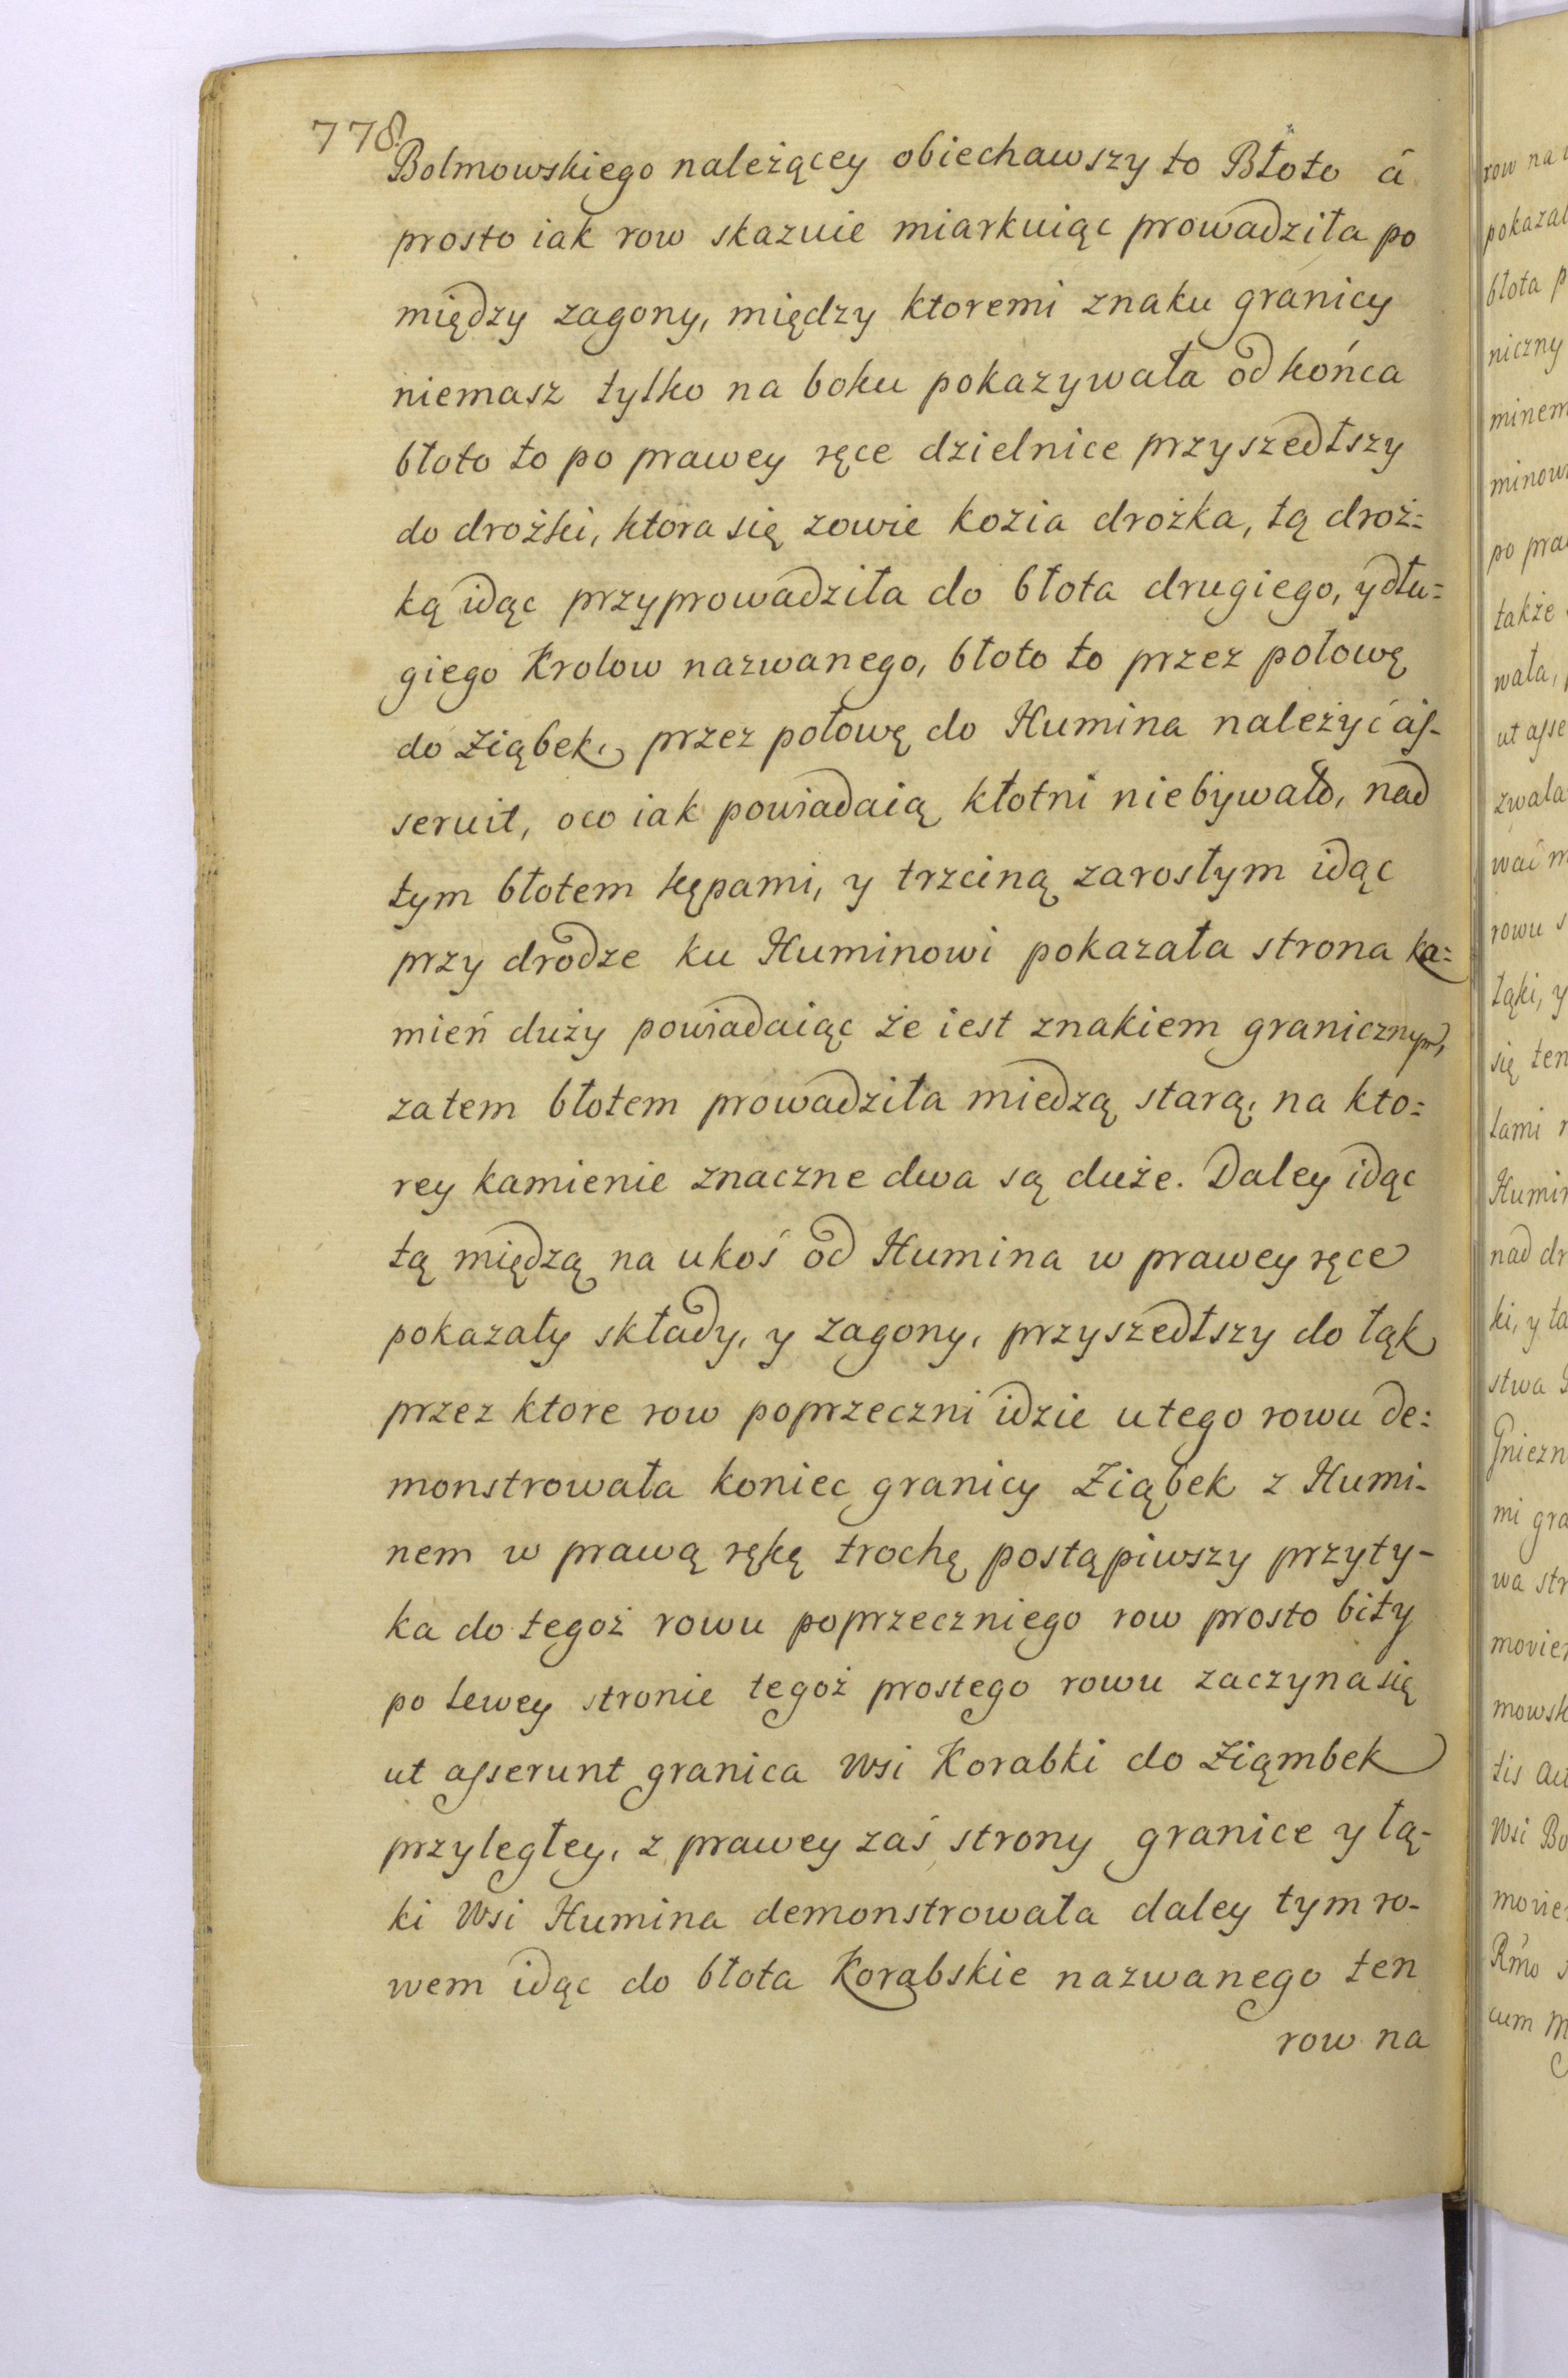 778.
Bolmowskiego należącey obiechawszy to Błoto á
prosto iak row skazuie miarkuiąc prowadziła po
między zagony, między ktoremi znaku granicy
niemasz tylko na boku pokazywała od końca
błoto to po prawey ręce dzielnice przyszedłszy
do drożki, ktora się zowie kozia drożka, tą droż=
ką idąc przyprowadziła do błota drugiego, y dłu=
giego Krolow nazwanego, błoto to przez połowę
do Ziąbek, przez połowę do Humina należyć as-
seruit, oco iak powiadaią kłotni niebywało, nad
tym błotem kępami, y trzciną zarosłym idąc
przy drodze ku Huminowi pokazała strona ka=
mień duży powiadaiąc że iest znakiem granicznym,
zatem błotem prowadziła miedzą starą, na kto=
rey kamienie znaczne dwa są duże. Daley idąc
tą międzą na ukoś od Humina w prawey ręce
pokazały składy, y zagony, przyszedłszy do łąk
przez ktore row poprzeczni idzie utego rowu de=
monstrowała koniec granicy Ziąbek z Humi-
nem w prawą rękę trochę postąpiwszy przyty-
ka do tegoż rowu poprzeczniego row prosto bity
po lewey stronie tegoż prostego rowu zaczyna się
ut asserunt granica Wsi Korabki do Ziąmbek
przyległey, z prawey zaś strony granice y łą-
ki Wsi Humina demonstrowała daley tym ro-
wem idąc do błota Korabskie nazwanego ten
row na